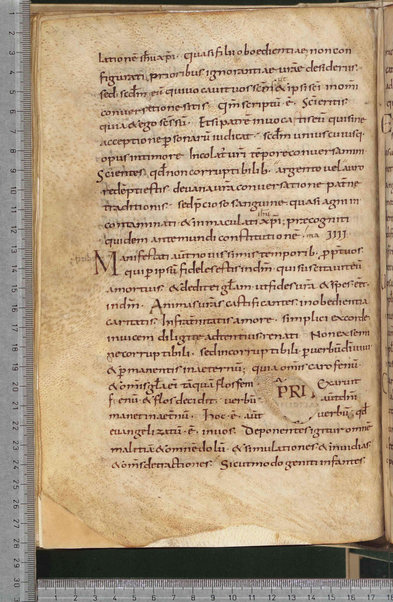 lationē ihu xpi · quasi filii oboedientiae non con
figurati prioribus ignorantiae uṙae desideriis ·
sed scdm eū qui uocauit uos scm ut & ipsi sci in omni
conuersatione sitis · Qm scriptū ē · Sci eritis
quia & ego scs sū · Et si patrē inuocatis eū qui sine
acceptione psonarū iudicat · scdm unius cuiusq;
opus in timore · Incolatus uri tēpore conuersamini
Scientes qđ non corruptibilib · argento uel auro
redēpti estis de uana ura conuersatione patnę
traditionis · sed pcioso sanguine quasi agni in
contaminati & inmaculati xpi ihu · praecogniti
quidem ante mundi constitutione · IIII.
Manifestati aut nouissimis temporib · ppt uos
qui p ipsū fideles estis in dm qui suscitauit eū
a mortuis & dedit ei glam ut fides ura & spes eēt
in dm · Animas uras castificantes in obedientia
caritatis · In fraternitatis amore · simplici ex corde
inuicem diligite adtentius renati · Non ex semi
ne corruptibili · sed incorruptibili p uerbū di uiui
& pmanentis in aeternū ; quia omis caro fenū
& omis gla ei tāquā flos feni · PRI Exaruit
fenū & flos decidit · uerbū aut dni
manet in aetnū · Hoc · ē · aut uerbū · qđ
euangelizatū · ē · in uos · Deponentes igitur omnē
malitiā & omnē dolū · & simulationes & inuidias
& oms detractiones · Sicut modo geniti infantes